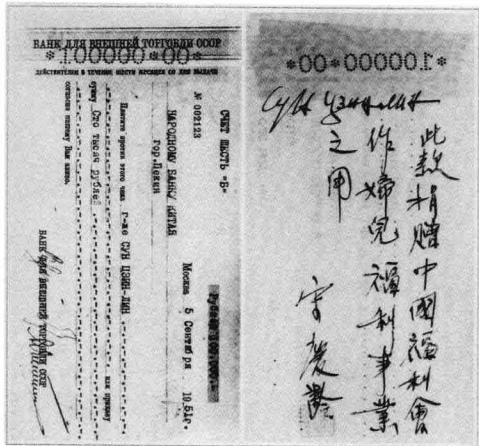 БАНК ДЛЯ ВНЕШНЕЙ ТОРГОВЛИ СССР
*100000*00*
ДЕЙСТВИТЕЛЕН В ТЕЧЕНИЕ ШЕСТИ МЕСЯЦЕВ СО ДНЯ ВЫДАЧИ
СЧЕТ ШЕСТЬ "Б"
№ 002123 Москва 5 Сентября 1951г.
НАРОДНОМУ БАНКУ КИТАЯ
гор.Пекин
Платите против этого чека Г-же СУН ЦЗИН-ЛИН или приказу
сумму Сто тысяч рублей
согласно нашему Вам авизо.
БАНК ДЛЯ ВНЕШНЕЙ ТОРГОВЛИ СССР
*00*00000.1*
Сун Цзин-лин
此款捐贈中國福利會
作婦兒福利事業
之用
宋慶齡